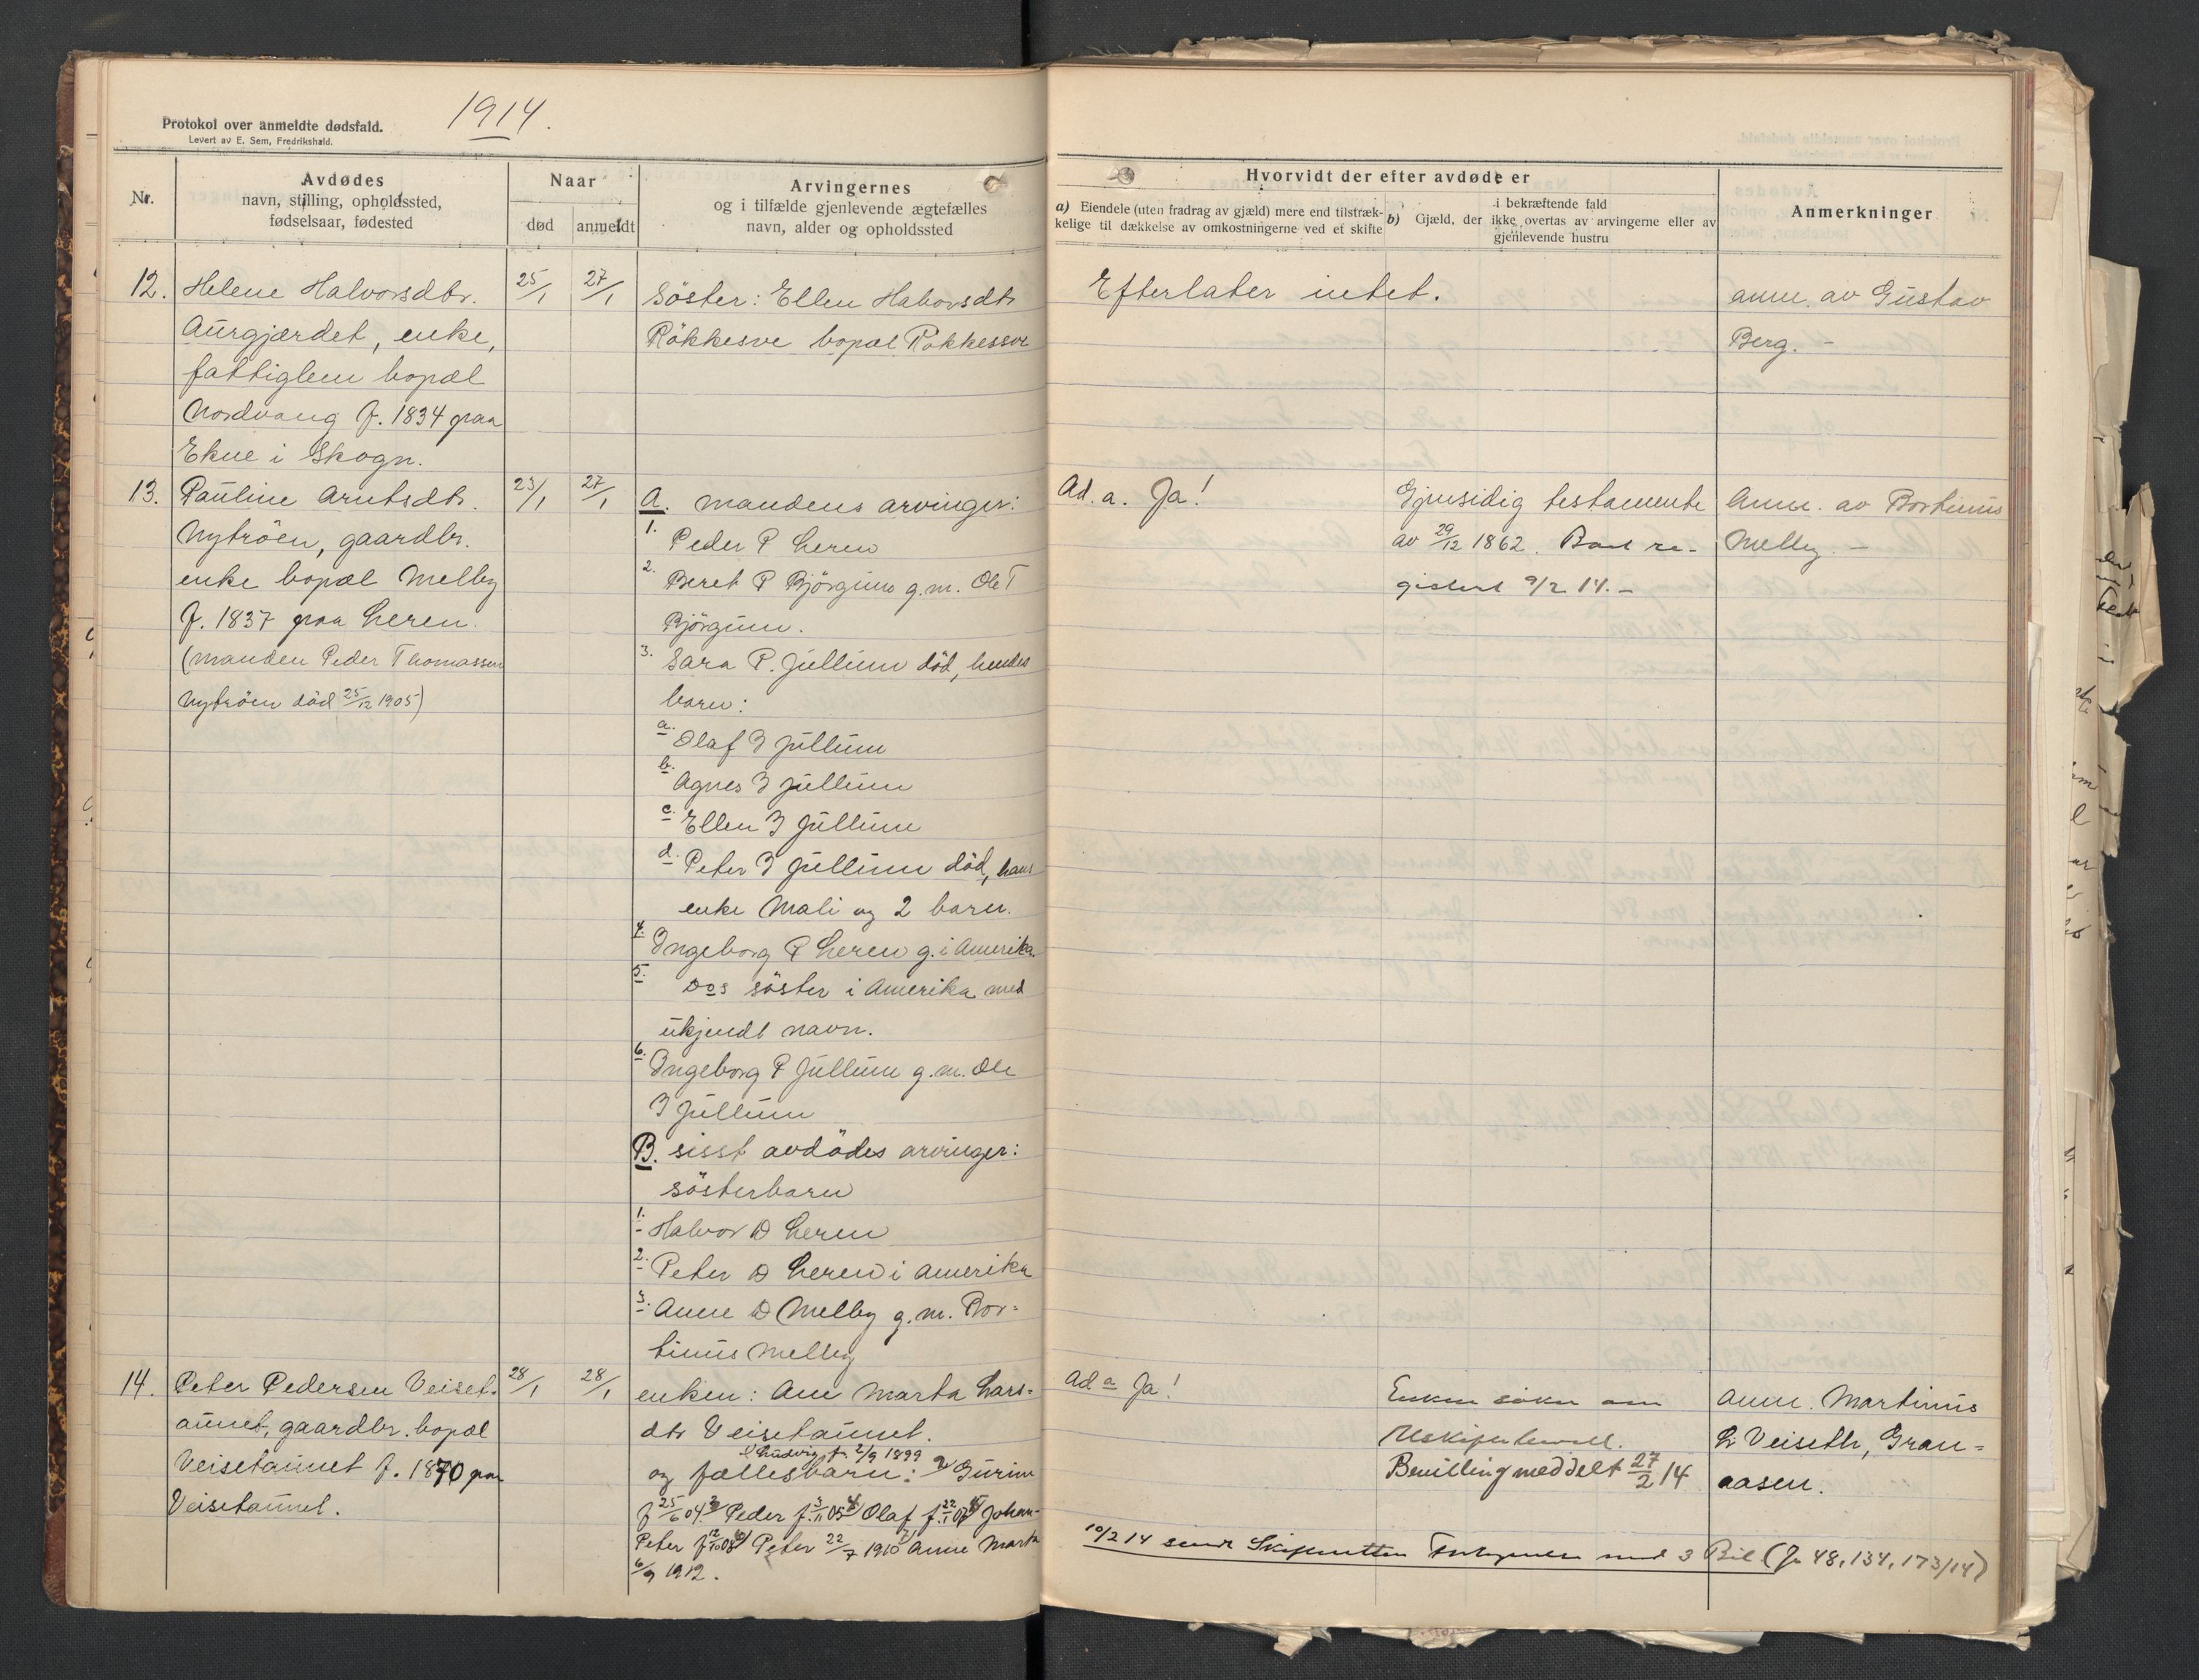 1914.
Protokol over anmeldte dødsfald.
Levert av E. Sem, Fredrikshald.
Nr.
Avdødes
navn, stilling, opholdssted,
fødselsaar, fødested
Naar
død
anmeldt
Arvingernes
og i tilfælde gjenlevende ægtefælles
navn, alder og opholdssted
Hvorvidt der efter avdøde er
a) Eiendele (uten fradrag av gjæld) mere end tilstræk-
kelige til dækkelse av omkostningerne ved et skifte
b) Gjæld, der i bekræftende fald
ikke overtas av arvingerne eller av
gjenlevende hustru
Anmerkninger
12. Helene Halvorsdtr.
Aurgjærdet, enke,
fattiglem bopæl
Nordvang f. 1834 paa
Ekne i Skogn.
25/1
27/1
Søster: Ellen Halvorsdtr
Røkkesve bopæl Røkkesve
Efterlater intet.
anm. av Gustav
Berg. -
13. Pauline Arntsdtr.
Nytröen, gaardbr.
enke bopæl Melby
f. 1837 paa Leren.
(manden Peder Thomassen
Nytröen död 25/12 1905)
23/1
27/1
A. mandens arvinger:
1. Peder P Leren
2. Beret P Björgum g.m. Ole T
Björgum.
3. Sara P. Jullum död, hendes
barn:
a. Olaf J Jullum
b. Agnes J Jullum
c. Ellen J Jullum
d. Peter J Jullum död, hans
enke Mali og 2 barn.
4. Ingeborg P Leren g. i Amerika.
5. Dos söster i Amerika med
ukjendt navn.
6. Ingeborg P Jullum g.m. Ole
J Jullum
B. sisst avdödes arvinger:
sösterbarn
1. Halvor D Leren
2. Peter D Leren i Amerika
3. Anne D Melby g.m. Bor-
tinus Melby
Ad. a. Ja!
Gjensidig testamente
av 29/12 1862. Boet re-
gistrert 9/2 14. -
Anm. av Bortinus
Melby. -
14. Peter Pedersen Veiset-
aunet, gaardbr. bopæl
Veisetaunet f. 1870 paa
Veisetaunet.
28/1
28/1
enken: Ane Marta Lars-
dtr Veisetaunet.
1) Ludvig f. 2/9 1899
og fællesbarn: 2) Gurine
f 25/6 04 3) Peder f. 3/11 05 4) Olaf f. 22/1 07 5) Johan
Peter f 12/10 08 6) Peter 22/7 1910 7) Anne Marta
6/9 1912.
Ad a Ja!
Enken söker om
Uskiftebevill.
Bevilling meddelt 27/2 14
Anm. Martinus
L Veiseth, Gran-
aasen.
10/2 14 sendt Skifteretten med 3 Bil. (J. 48, 134, 173/14)